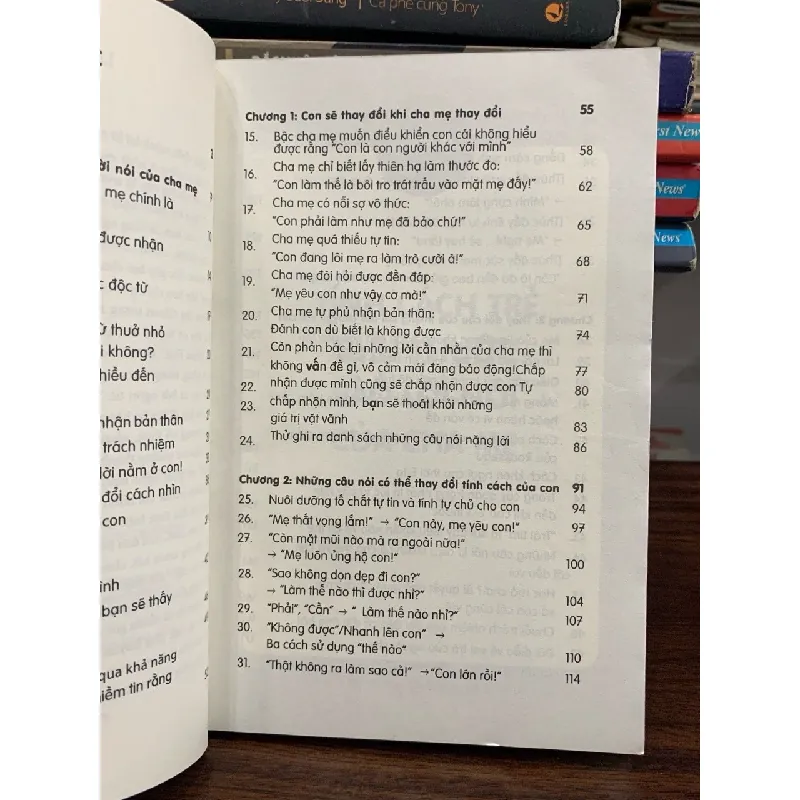 Cà phê cùng Tony
ời nói của cha mẹ
mẹ chính là
được nhận
c độc từ
ừ thuở nhỏ
i không?
hiều đến
nhận bản thân
trách nhiệm
lời nằm ở con!
đổi cách nhìn
con
inh
bạn sẽ thấy
qua khả năng
niềm tin rằng
Chương 1: Con sẽ thay đổi khi cha mẹ thay đổi 55
15. Bậc cha mẹ muốn điều khiển con cái không hiểu
được rằng "Con là con người khác với mình" 58
16. Cha mẹ chỉ biết lấy thiên hạ làm thước đo:
"Con làm thế là bôi tro trát trấu vào mặt mẹ đấy!" 62
17. Cha mẹ có nỗi sợ vô thức:
"Con phải làm như mẹ đã bảo chứ!" 65
18. Cha mẹ quá thiếu tự tin:
"Con đang lôi mẹ ra làm trò cười à!" 68
19. Cha mẹ đòi hỏi được đền đáp:
"Mẹ yêu con như vậy cơ mà!" 71
20. Cha mẹ tự phủ nhận bản thân:
Đánh con dù biết là không được 74
21. Còn phản bác lại những lời cằn nhằn của cha mẹ thì
không vấn đề gì, vô cảm mới đáng báo động!Chấp 77
22. nhận được mình cũng sẽ chấp nhận được con Tự 80
23. chấp nhận mình, bạn sẽ thoát khỏi những
giá trị vặt vãnh 83
24. Thử ghi ra danh sách những câu nói nặng lời 86
Chương 2: Những câu nói có thể thay đổi tính cách của con 91
25. Nuôi dưỡng tố chất tự tin và tính tự chủ cho con 94
26. "Mẹ thất vọng lắm!" → "Con này, mẹ yêu con!" 97
27. "Còn mặt mũi nào mà ra ngoài nữa!"
→ "Mẹ luôn ủng hộ con!" 100
28. "Sao không dọn dẹp đi con?"
→ "Làm thế nào thì được nhỉ?" 104
29. "Phải", "Cần" → " Làm thế nào nhỉ?" 107
30. "Không được"/Nhanh lên con" →
Ba cách sử dụng "thế nào" 110
31. "Thật không ra làm sao cả!" →"Con lớn rồi!" 114
News"
News